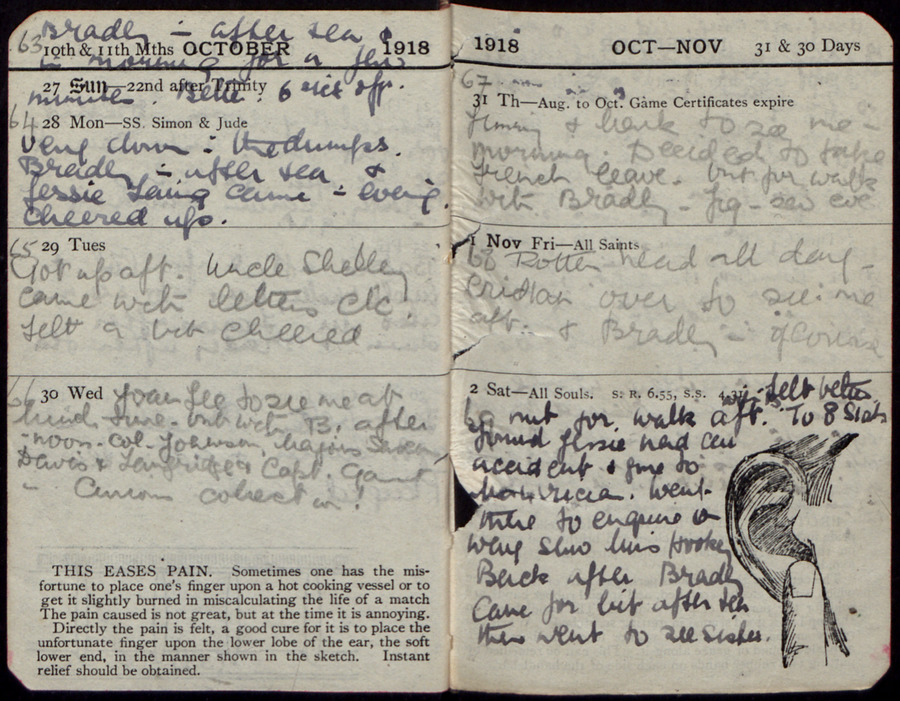 63 Bradley - after tea &
10th & 11th Mths OCTOBER 1918
in morning for a few
27 Sun—22nd after Trinity
minutes. Better. 6 off.
64 28 Mon—SS. Simon & Jude
Very down in the dumps.
Bradley - after tea &
Jessie Laing came - evening.
Cheered up.
65 29 Tues
Got up aft. Uncle Shelley
came with letters etc
felt a bit cheered
66 30 Wed Joan Lee to see me at
lunch time. out with B. after
noon. Col. Johnson, Majors
Davis & Langridge & Capt. Gaunt
- Curious collection!
THIS EASES PAIN. Sometimes one has the mis-
fortune to place one's finger upon a hot cooking vessel or to
get it slightly burned in miscalculating the life of a match
The pain caused is not great, but at the time it is annoying.
Directly the pain is felt, a good cure for it is to place the
unfortunate finger upon the lower lobe of the ear, the soft
lower end, in the manner shown in the sketch. Instant
relief should be obtained.
1918 OCT—NOV 31 & 30 Days
67
31 Th—Aug. to Oct. Game Certificates expire
Jimmy & Hank to see me -
morning. Decided to take
french leave. out for walk
with Bradley -
1 Nov Fri—All Saints
68 Rotten head all day -
over to see me
aft. & Bradley - of course
2 Sat—All Souls. S. R. 6.55, S.S. 4.31 felt better
out for walk aft. To 8 Stats
found Jessie had an
accident & gone to
. Went
there to enquire &
Miss Hooker
Back after Bradley
Came for bit after tea
then went to see sister.